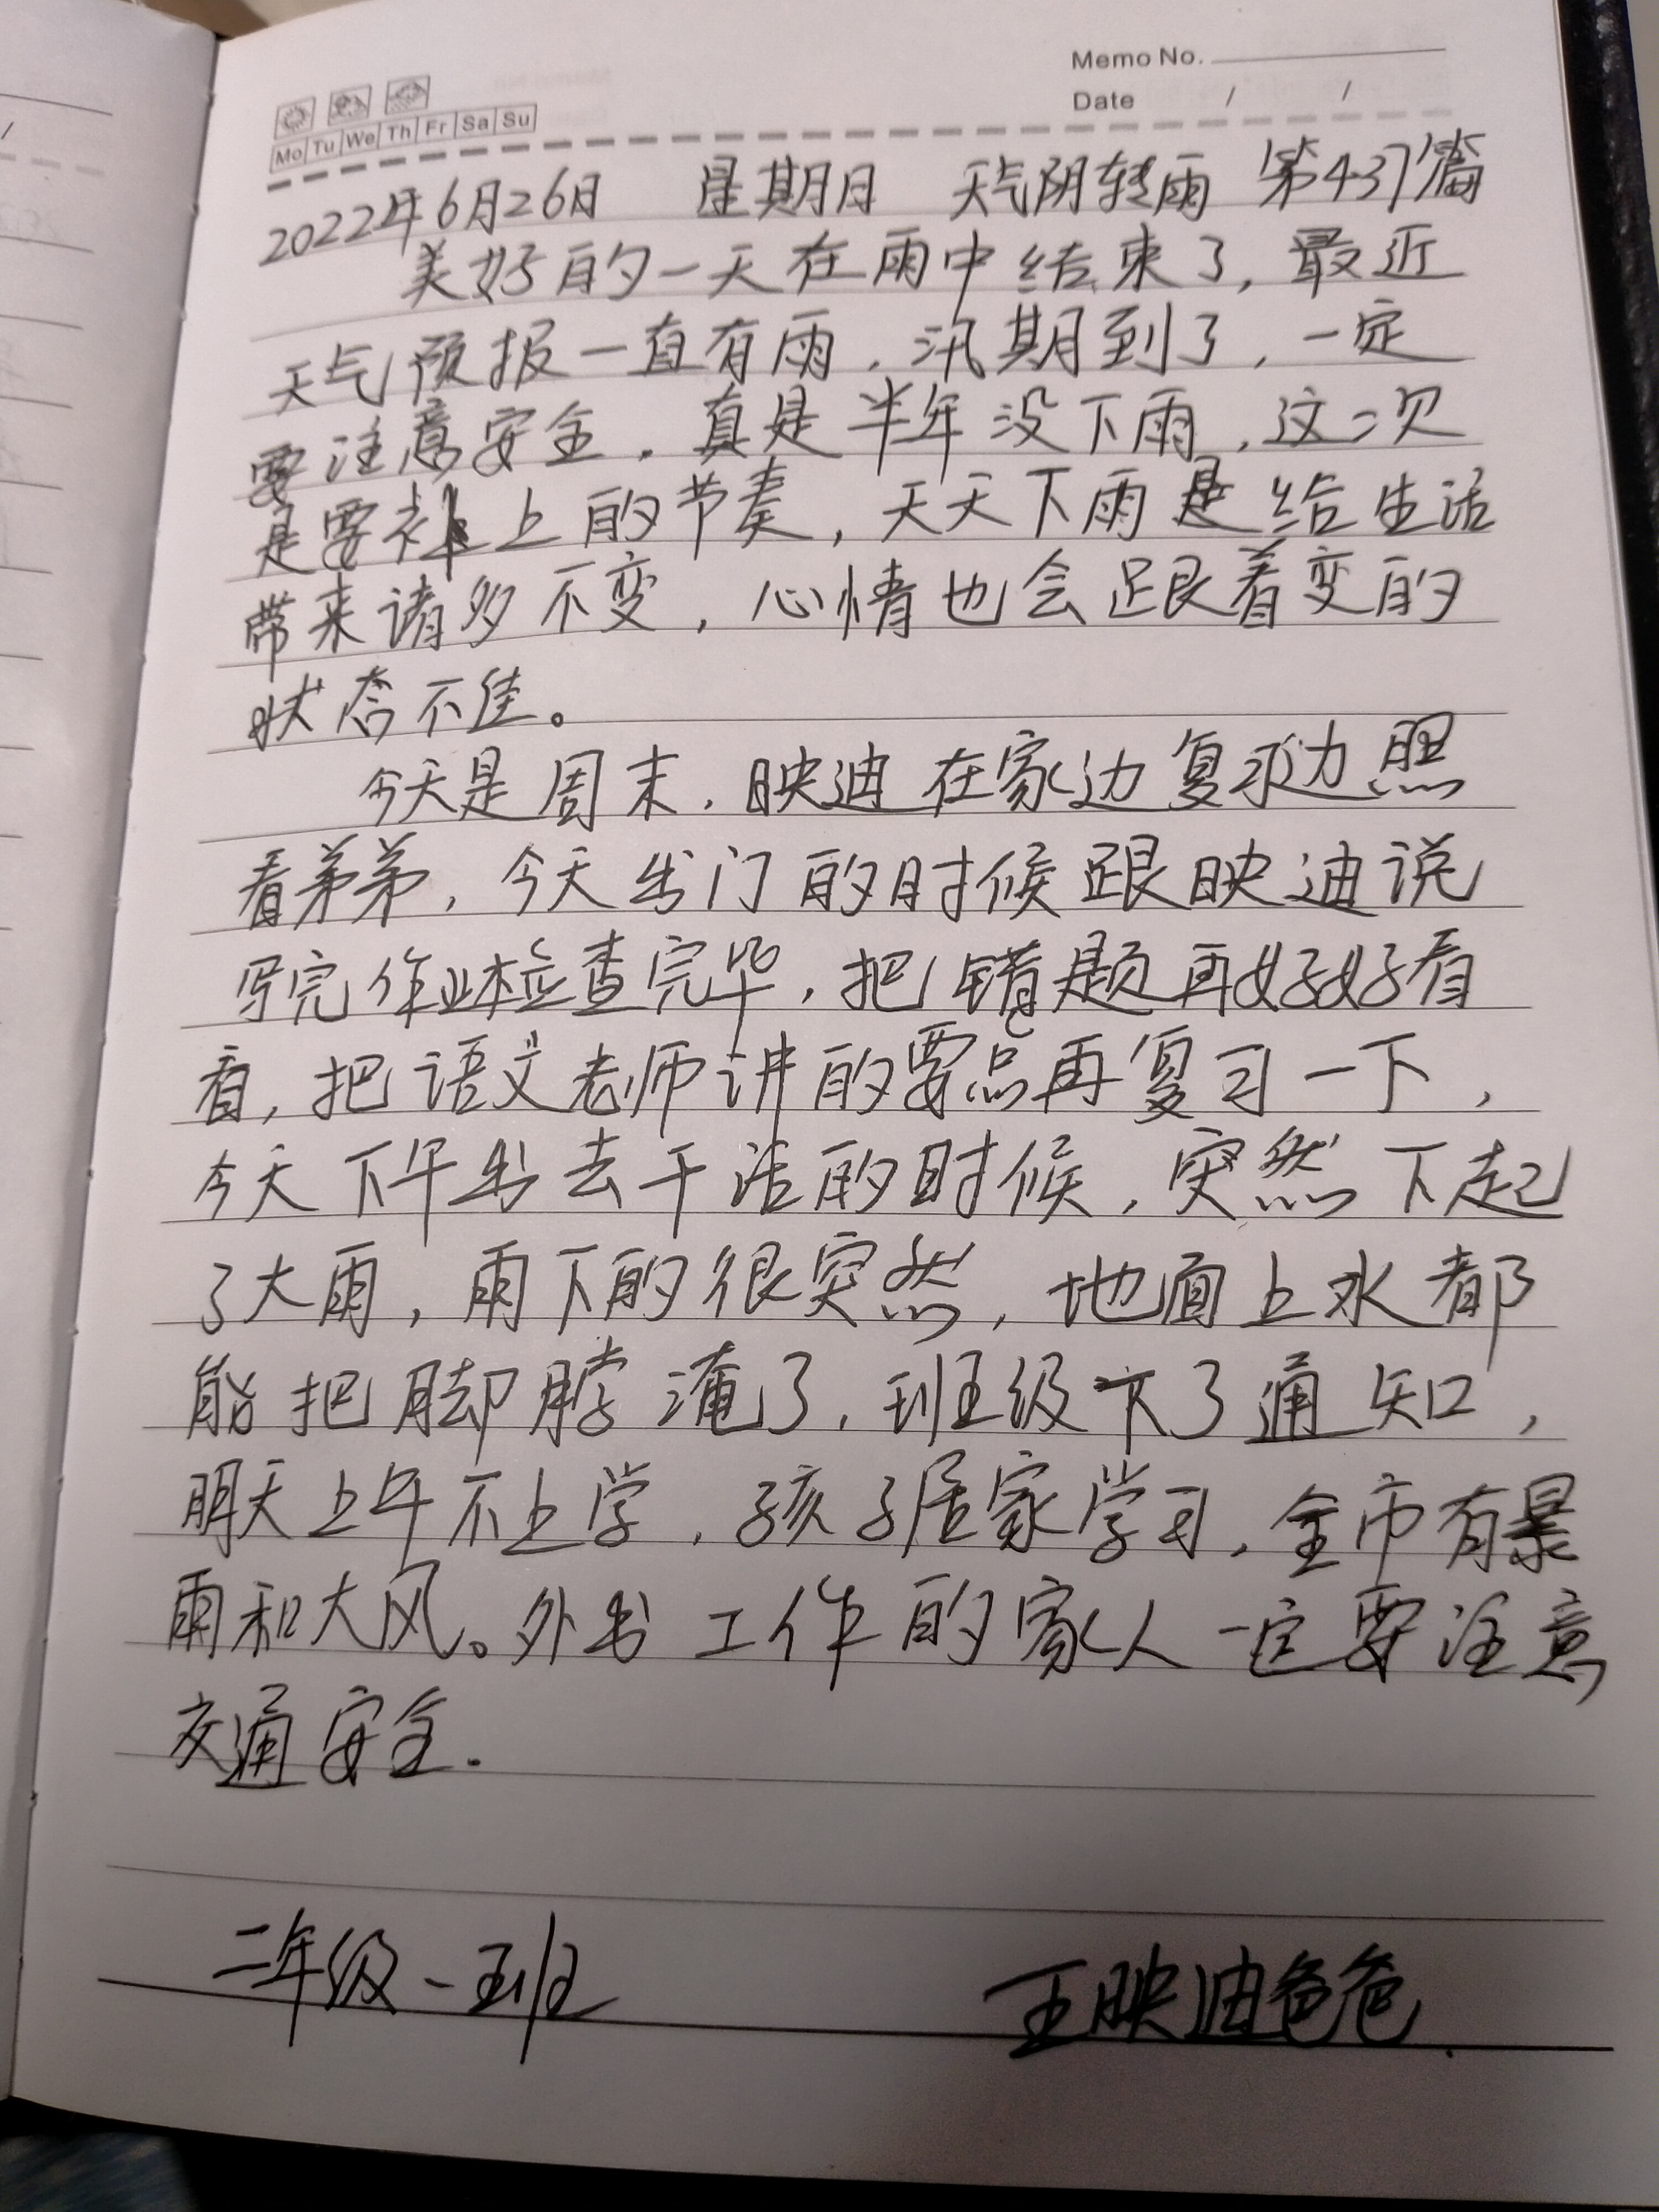 Memo No.
Date / /
Mo Tu We Th Fr Sa Su
2022年6月26日 星期日 天气阴转雨 第437篇
美好的一天在雨中结束了,最近
天气预报一直有雨,汛期到了,一定
要注意安全.真是半年没下雨,这二次
是要补上的节奏,天天下雨是给生活
带来诸多不变,心情也会跟着变的
状态不佳。
今天是周末,映迪在家边复习边照
看弟弟,今天出门的时候跟映迪说
写完作业检查完毕,把错题再好好看
看,把语文老师讲的要点再复习一下,
今天下午出去干活的时候,突然下起
了大雨,雨下的很突然,地面上水都
能把脚脖淹了,班级下了通知,
明天上午不上学,孩子居家学习,全市有暴
雨和大风。外出工作的家人一定要注意
交通安全.
二年级一班 王映迪爸爸.